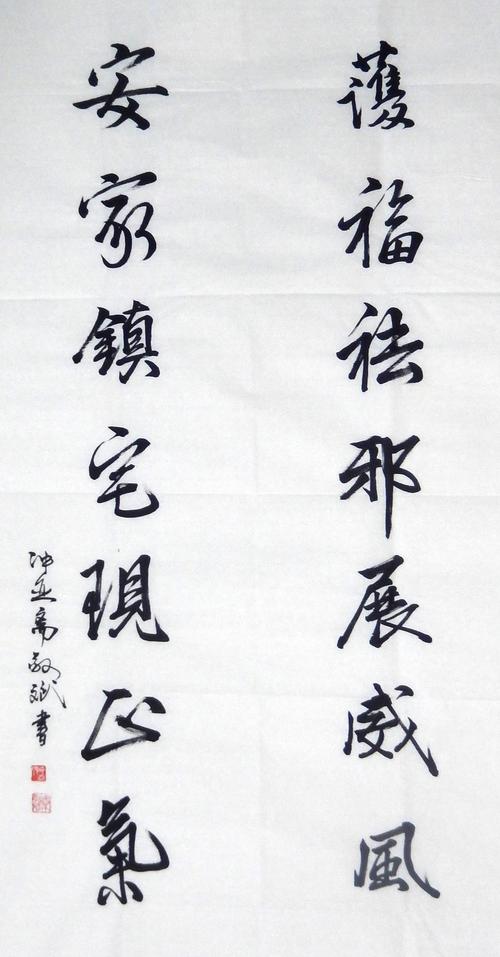 護福祛邪展威風
安家鎮宅現正氣
斌書